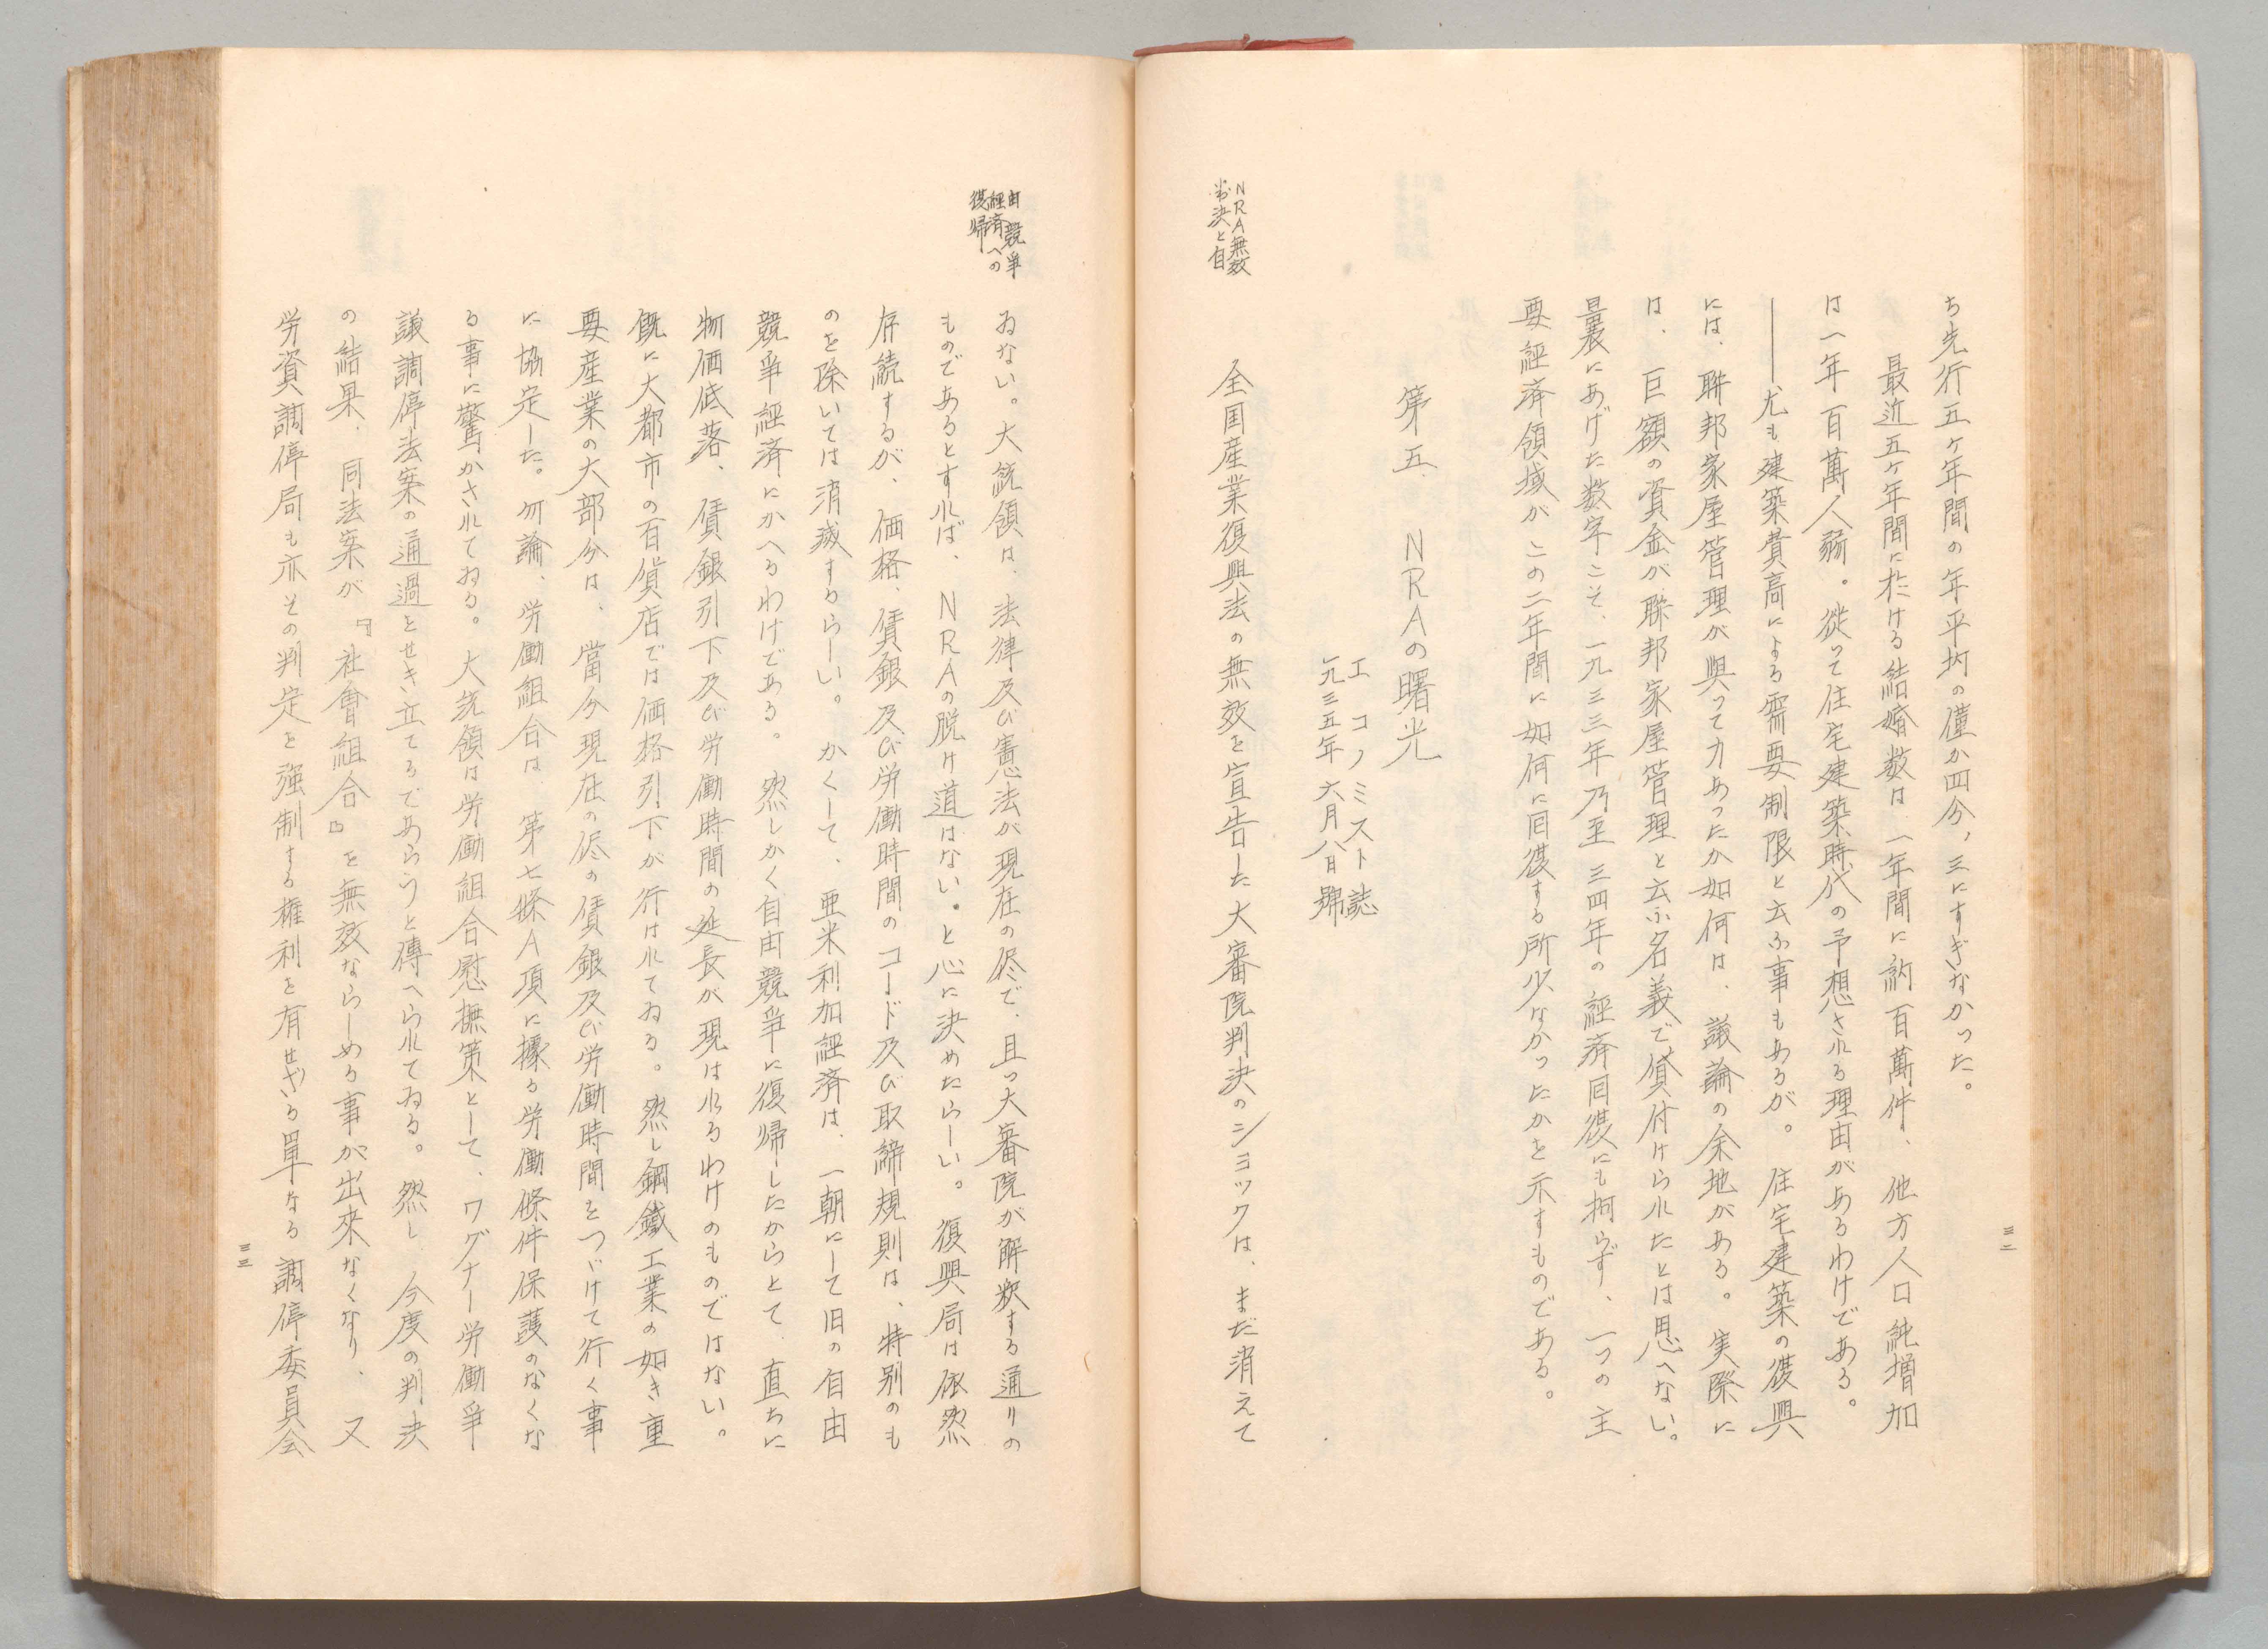 ち先行五ケ年間の年平均の僅か四分ノ三にすぎなかった。
最近五ケ年間に於ける結婚数は一年間に約百萬件、他方人口純増加
は一年百萬人弱。從って住宅建築時代の予想される理由があるわけである。
――尤も建築費高による需要制限と云ふ事もあるが。住宅建築の復興
には、聯邦家屋管理が與って力あったか如何は、議論の余地がある。実際に
は、巨額の資金が聯邦家屋管理と云ふ名義で貸付けられたとは思へない。
曩にあげた数字こそ、一九三三年乃至三四年の経済回復にも拘らず、一つの主
要経済領域がこの二年間に如何に回復する所少なかったかを示すものである。
第五 NRAの曙光
エコノミスト誌
一九三五年六月八日號
NRA無效
判決と自
全国産業復興法の無效を宣告した大審院判決のショックは、まだ消えて
三二
由競争
経済への
復帰
ゐない。大統領は、法律及び憲法が現在の侭で、且つ大審院が解釈する通りの
ものであるとすれば、NRAの脱け道はない。と心に決めたらしい。復興局は依然
存続するが、価格、賃銀及び労働時間のコード及び取締規則は、特別のも
のを除いては消滅するらしい。かくして、亜米利加経済は、一朝にして旧の自由
競争経済にかへるわけである。然しかく自由競争に復帰したからとて、直ちに
物価低落、賃銀引下及び労働時間の延長が現はれるわけのものではない。
既に大都市の百貨店では価格引下が行はれてゐる。然し鋼鐵工業の如き重
要産業の大部分は、當分現在の侭の賃銀及び労働時間をつゞけて行く事
に協定した。勿論、労働組合は、第七條A項に據る労働條件保護のなくな
る事に驚かされてゐる。大統領は労働組合慰撫策として、ワグナー労働争
議調停法案の通過をせき立てるであらうと傳へられてゐる。然し、今度の判決
の結果、同法案が『社會組合』を無效ならしめる事が出来なくなり、又
労資調停局も亦その判定を強制する権利を有せざる単なる調停委員会
三三